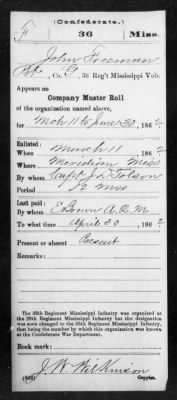 (Confederate.)
F 36 Miss.
John Freeman
Pvt, Co. G, 36 Reg't Mississippi Vols.
Appears on
Company Muster Roll
of the organization named above,
for Mch 11 to June 30, 1862
Enlisted:
When March 11, 1862
Where Meridian Miss
By whom Capt J. D. Tolson
Period 12 Mos
Last paid:
By whom E. Brown A.Q.M.
To what time April 30, 1862
Present or absent Present
Remarks:
The 36th Regiment Mississippi Infantry was organized as
the 28th Regiment Mississippi Infantry but the designation
was soon changed to the 36th Regiment Mississippi Infantry,
that being the number by which this organization was known
at the Confederate War Department.
Book mark:
J. W. Wilkinson
(642) Copyist.